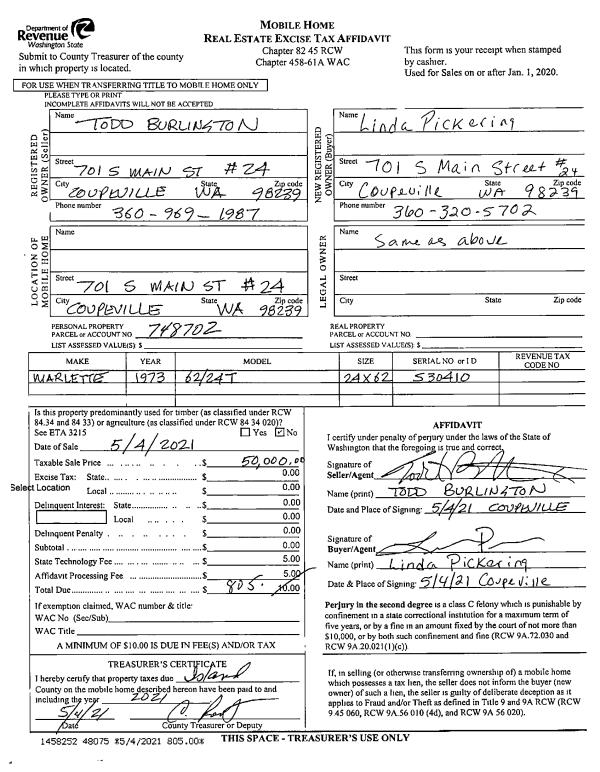 Department of
Revenue
Washington State
Submit to County Treasurer of the county
in which property is located.
MOBILE HOME
REAL ESTATE EXCISE TAX AFFIDAVIT
Chapter 82 45 RCW
Chapter 458-61A WAC
This form is your receipt when stamped
by cashier.
Used for Sales on or after Jan. 1, 2020.
FOR USE WHEN TRANSFERRING TITLE TO MOBILE HOME ONLY
PLEASE TYPE OR PRINT
INCOMPLETE AFFIDAVITS WILL NOT BE ACCEPTED
REGISTERED OWNER (Seller)
Name TODD BURLINGTON
Street 701 S MAIN ST #24
City COUPEVILLE State WA Zip code 98239
Phone number 360-969-1987
NEW REGISTERED OWNER (Buyer)
Name Linda Pickering
Street 701 S Main Street #24
City Coupeville State WA Zip code 98239
Phone number 360-320-5702
LOCATION OF MOBILE HOME
Name
Street 701 S MAIN ST #24
City COUPEVILLE State WA Zip code 98239
LEGAL OWNER
Name Same as above
Street
City State Zip code
PERSONAL PROPERTY
PARCEL or ACCOUNT NO. 748702
LIST ASSESSED VALUE(S) $
REAL PROPERTY
PARCEL or ACCOUNT NO.
LIST ASSESSED VALUE(S) $
MAKE YEAR MODEL SIZE SERIAL NO or I D REVENUE TAX CODE NO
MARLETTE 1973 62/24T 24X62 S30410
Is this property predominantly used for timber (as classified under RCW
84.34 and 84 33) or agriculture (as classified under RCW 84 34 020)?
See ETA 3215 Yes No
Date of Sale 5/4/2021
Taxable Sale Price $ 50,000.00
Excise Tax: State $ 0.00
Select Location Local $ 0.00
Delinquent Interest: State $ 0.00
Local $ 0.00
Delinquent Penalty $ 0.00
Subtotal $ 0.00
State Technology Fee $ 5.00
Affidavit Processing Fee $ 5.00
Total Due $ 805. 10.00
If exemption claimed, WAC number & title:
WAC No (Sec/Sub)
WAC Title
A MINIMUM OF $10.00 IS DUE IN FEE(S) AND/OR TAX
AFFIDAVIT
I certify under penalty of perjury under the laws of the State of
Washington that the foregoing is true and correct.
Signature of
Seller/Agent
Name (print) TODD BURLINGTON
Date and Place of Signing: 5/4/21 COUPEVILLE
Signature of
Buyer/Agent
Name (print) Linda Pickering
Date & Place of Signing: 5/4/21 Coupeville
Perjury in the second degree is a class C felony which is punishable by
confinement in a state correctional institution for a maximum term of
five years, or by a fine in an amount fixed by the court of not more than
$10,000, or by both such confinement and fine (RCW 9A.72.030 and
RCW 9A.20.021(1)(c))
TREASURER'S CERTIFICATE
I hereby certify that property taxes due Island
County on the mobile home described hereon have been paid to and
including the year 2021
5/4/21
Date County Treasurer or Deputy
If, in selling (or otherwise transferring ownership of) a mobile home
which possesses a tax lien, the seller does not inform the buyer (new
owner) of such a lien, the seller is guilty of deliberate deception as it
applies to Fraud and/or Theft as defined in Title 9 and 9A RCW (RCW
9 45 060, RCW 9A 56 010 (4d), and RCW 9A 56 020).
1458252 48075 *5/4/2021 805.00*
THIS SPACE - TREASURER'S USE ONLY